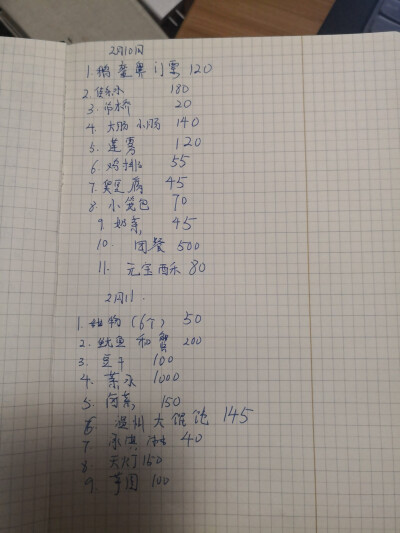 2月10日
1. 鹅銮鼻门票 120
2. 俱乐水 180
3. 吊桥 20
4. 大肠小肠 140
5. 莲雾 120
6. 鸡排 55
7. 臭豆腐 45
8. 小笼包 70
9. 奶茶 45
10. 团餐 500
11. 元宝酥 80
2月11.
1. (6个) 50
2. 鱿鱼和蟹 200
3. 豆干 100
4. 茶水 1000
5. 卤蛋 150
6 温州大馄饨 145
7. 冰淇淋 40
8 天灯 150
9. 芋圆 100